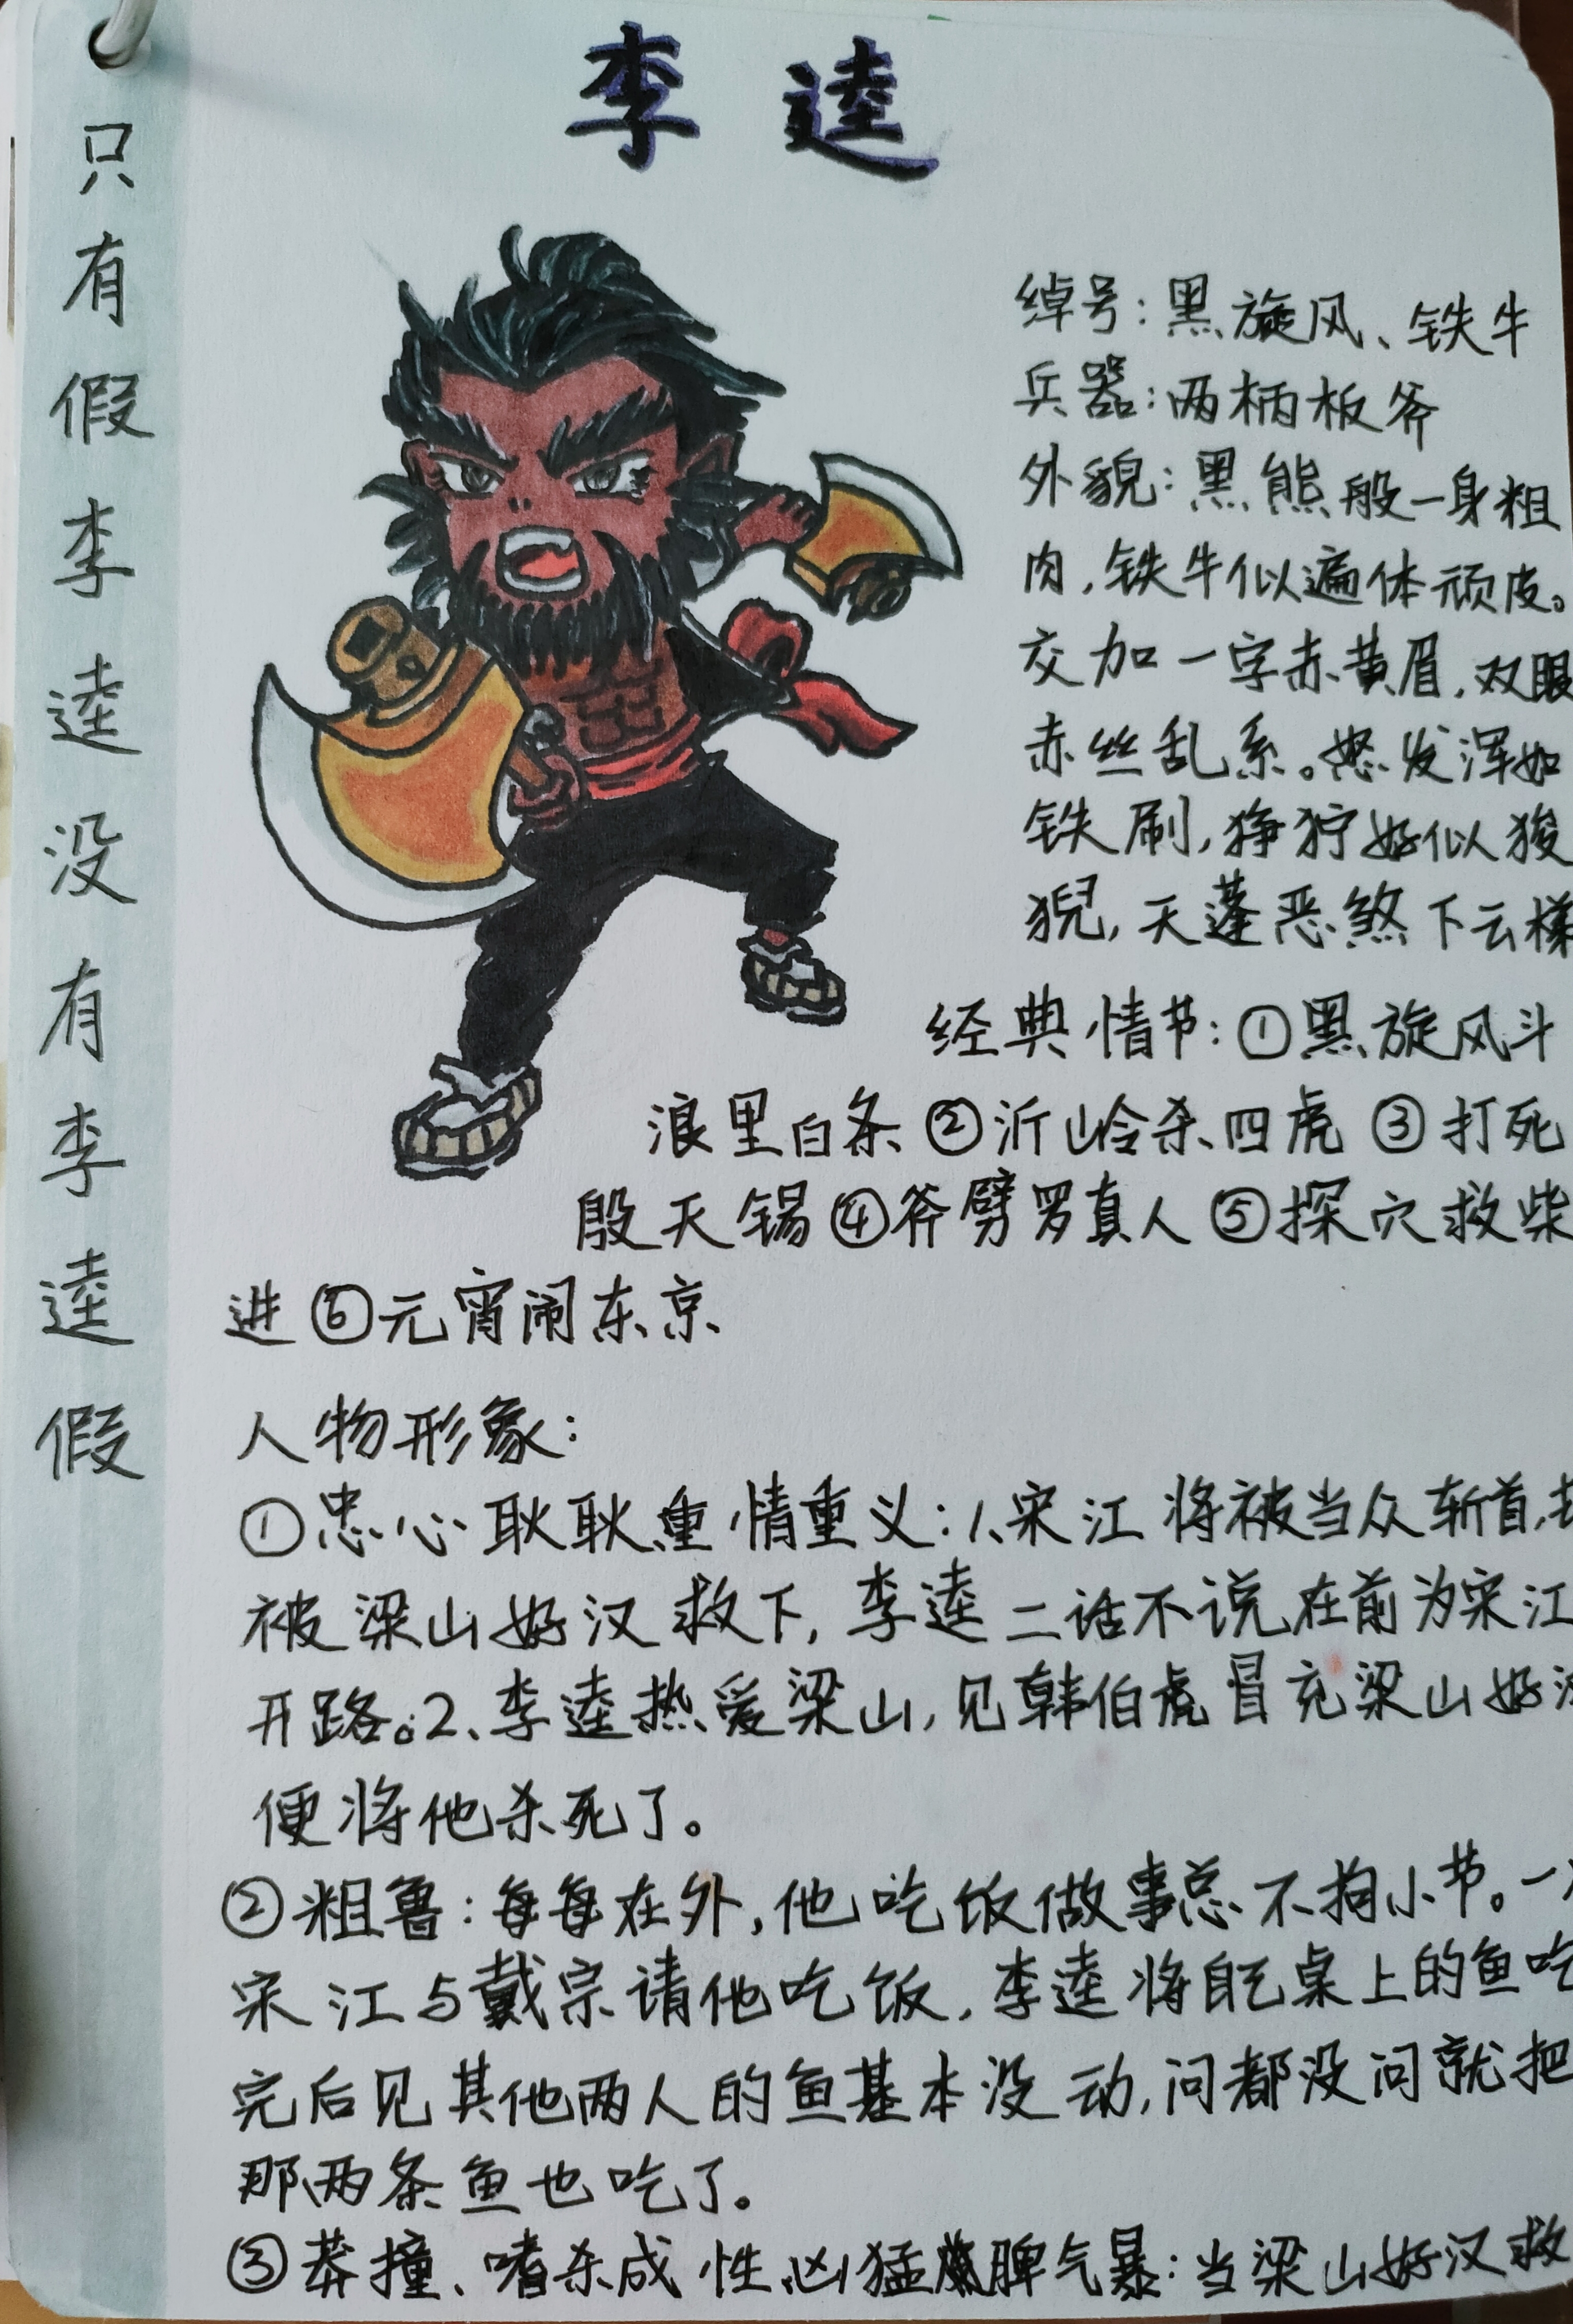 李逵
只有假李逵没有李逵假
绰号：黑旋风、铁牛
兵器：两柄板斧
外貌：黑熊般一身粗
肉，铁牛似遍体顽皮。
交加一字赤黄眉，双眼
赤丝乱系。怒发浑如
铁刷，狰狞好似狻
猊，天蓬恶煞下云梯
经典情节：①黑旋风斗
浪里白条②沂岭杀四虎③打死
殷天锡④斧劈罗真人⑤探穴救柴
进⑥元宵闹东京
人物形象：
①忠心耿耿重情重义：1、宋江将被当众斩首，
被梁山好汉救下，李逵二话不说在前为宋江
开路。2、李逵热爱梁山，见韩伯虎冒充梁山好汉
便将他杀死了。
②粗鲁：每每在外，他吃饭做事总不拘小节。一
宋江与戴宗请他吃饭，李逵将自己桌上的鱼吃
完后见其他两人的鱼基本没动，问都没问就把
那两条鱼也吃了。
③莽撞、嗜杀成性、凶猛脾气暴：当梁山好汉救